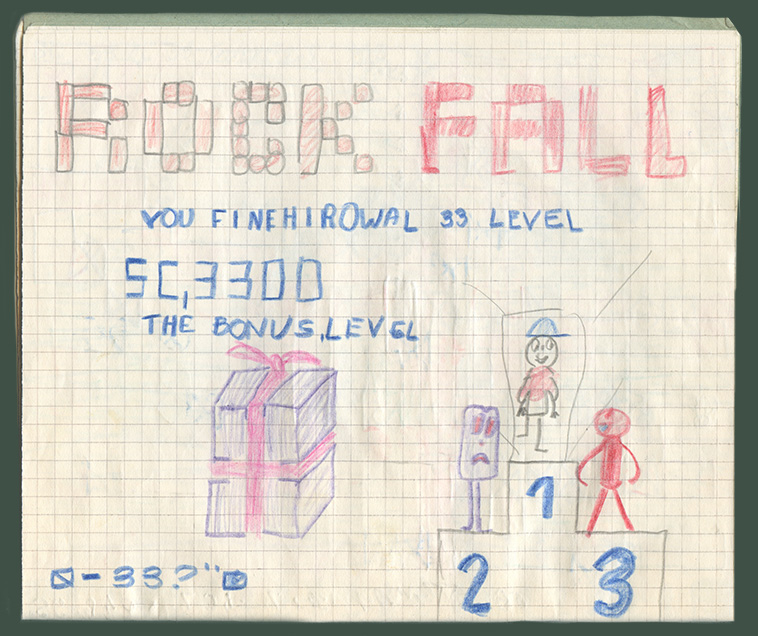 ROCK FALL
YOU FINEHIROWAL 33 LEVEL
SC,3300
THE BONUS,LEVEL
1
2 3
-33?"